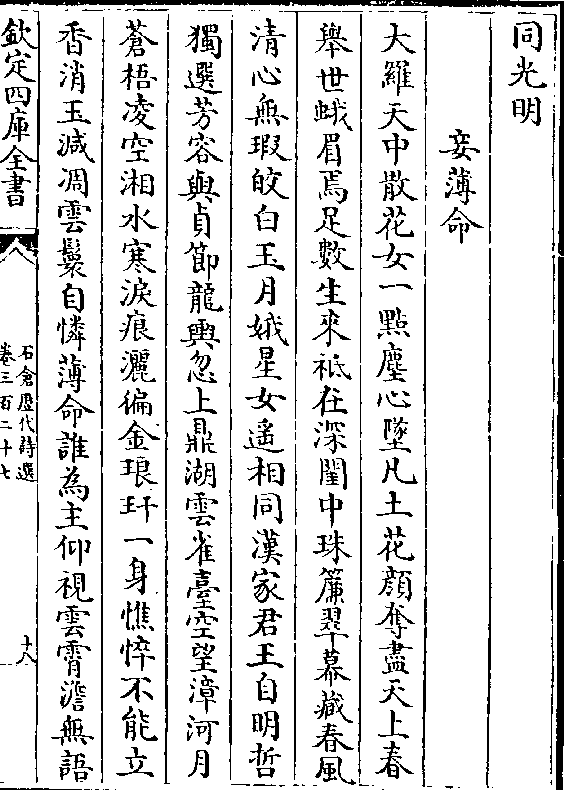 同光明
妾薄命
大羅天中散花女一點塵心墜凡土花顔奪盡天上春
舉世蛾眉焉足數生來祗在深閨中珠簾翠幕藏春風
清心無瑕皎白玉月娥星女遙相同漢家君王自明哲
獨選芳容與貞節龍輿忽上鼎湖雲雀臺空望漳河月
蒼梧凌空湘水寒淚痕灑徧金琅玕一身憔悴不能立
香消玉減凋雲鬟自憐薄命誰為主仰視雲霄澹無語
欽定四庫全書
石倉歷代詩選
卷三百二十七
十八